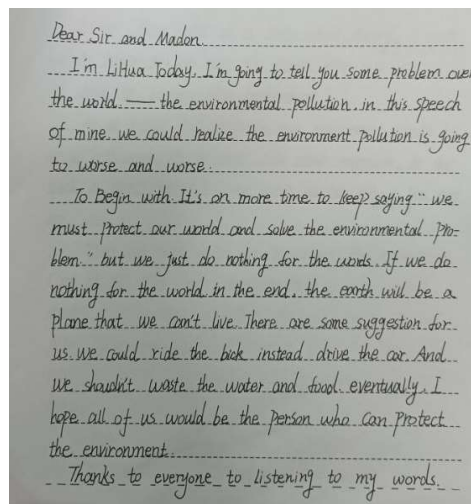 Dear Sir and Madon.
I'm LiHua Today, I'm going to tell you some problem over
the world — the environmental pollution. in this speech
of mine we could realize the environment pollution is going
to worse and worse.
To Begin with It's on more time to keep saying "we
must protect our world and solve the environmental pro-
blem." but we just do nothing for the words. If we do
nothing for the world in the end. the earth will be a
plane that we can't live. There are some suggestion for
us we could ride the bick instead drive the car. And
we shoudn't waste the water and food. eventually, I
hope all of us would be the person who can protect
the environment.
Thanks to everyone to listening to my words.